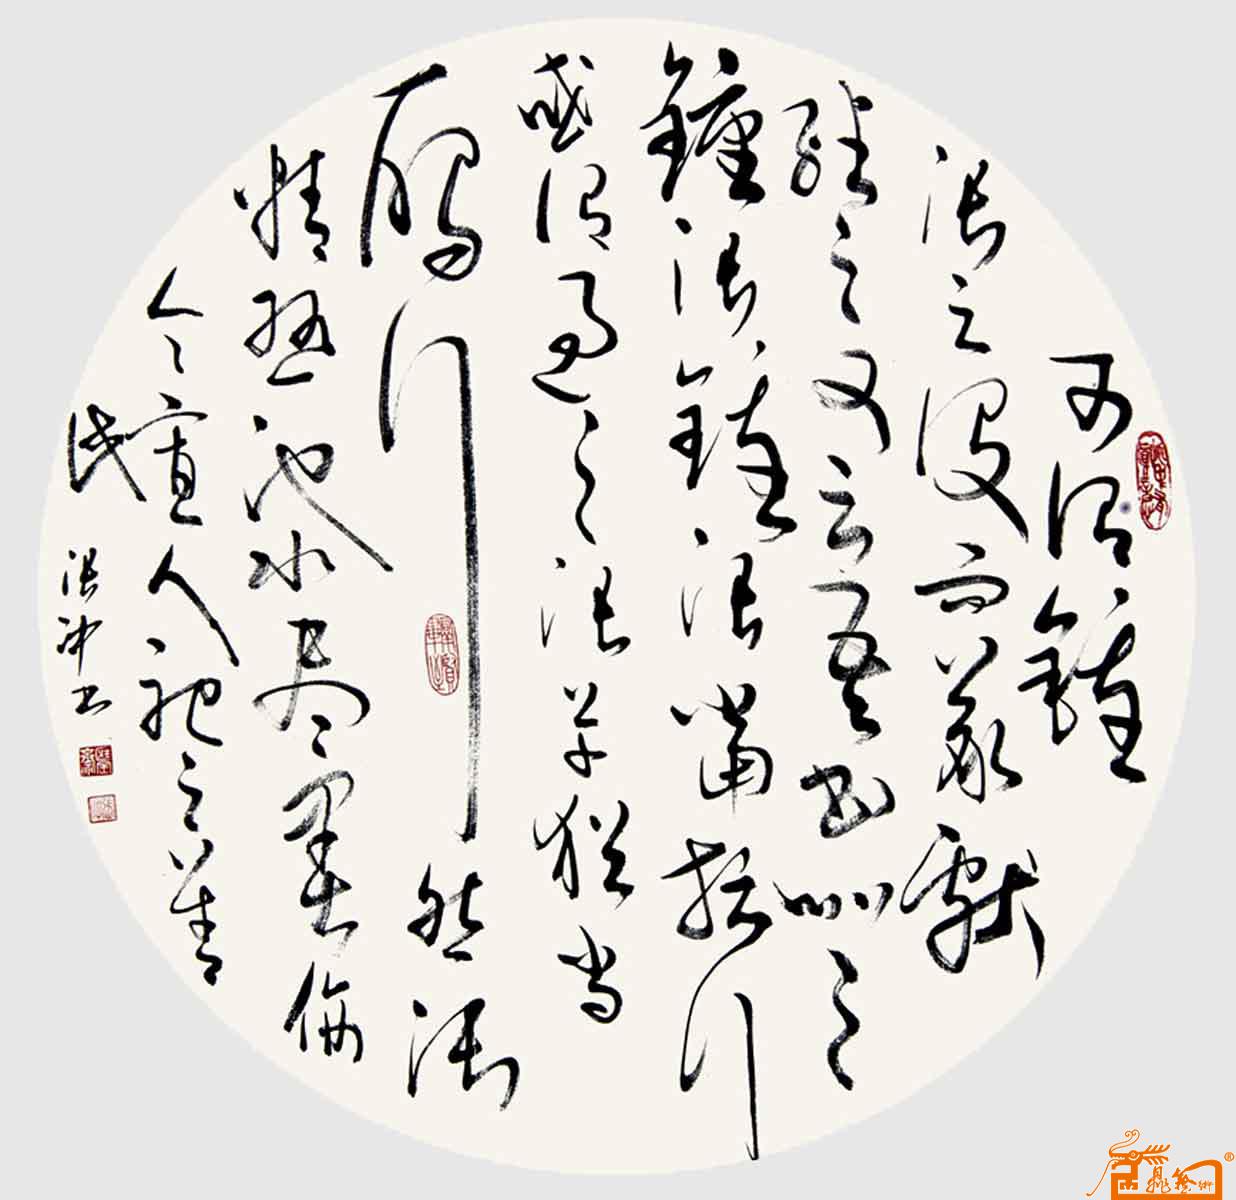 可謂鍾
張云沒而羲獻
繼之又云吾書比之
鍾張鍾張當抗行
或謂過之張草猶當
雁行然張
精熟池水盡墨假
令寡人耽之若
此
張沖書